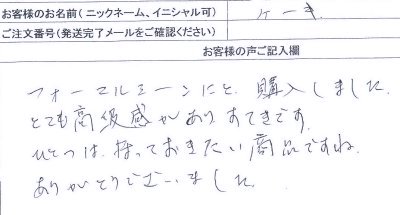 お客様のお名前（ニックネーム、イニシャル可）
ケーキ
ご注文番号（発送完了メールをご確認ください）
お客様の声ご記入欄
フォーマルシーンにと、購入しました。
とても高級感がありすてきです。
ひとつは、持っておきたい商品ですね。
ありがとうございました。